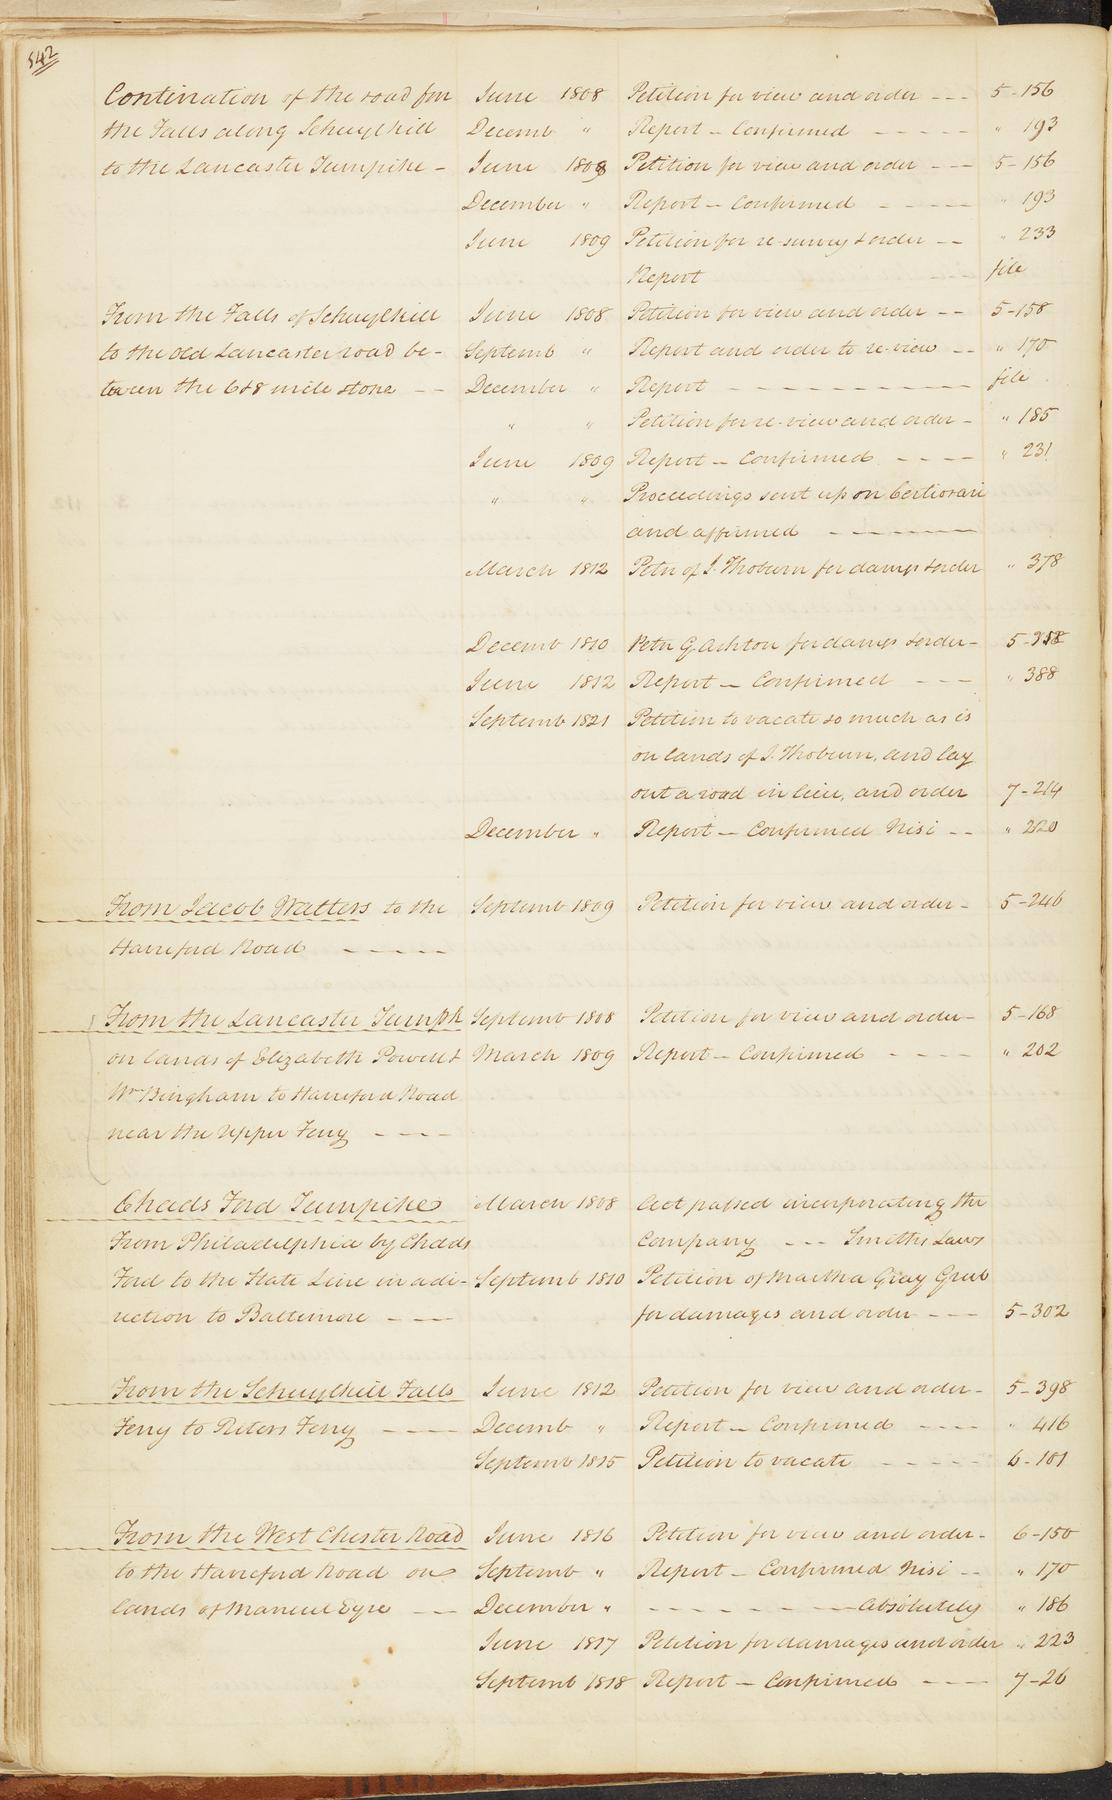 542
Contination of the road fm June 1808 Petition for view and order --- 5-156
the Falls along Schuylkill Decemb " Report - Confirmed ----- " 193
to the Lancaster Turnpike - June 1808 Petition for view and order --- 5-156
December " Report - Confirmed ----- " 193
June 1809 Petition for re-survey & order -- " 233
Report --- file
From the Falls of Schuylkill June 1808 Petition for view and order -- 5-158
to the old Lancaster road be- Septemb " Report and order to re-view -- " 170
tween the 6&8 mile stone -- December " Report ---------- file
" " Petition for re-view and order - " 185
June 1809 Report - Confirmed ---- " 231
" " Proceedings sent up on Certiorari
and affirmed ------
March 1812 Petn of J. Thoburn for damgs & order " 378
Decemb 1810 Petn G. Ashton for damgs & order - 5-
June 1812 Report - Confirmed --- " 388
Septemb 1821 Petition to vacate so much as is
on lands of J. Thoburn, and lay
out a road in lieu, and order 7-214
December " Report - Confirmed Nisi -- " 220
From Jacob Watters to the Septemb 1809 Petition for view and order - 5-246
Harreford Road -----
From the Lancaster Turnpk Septemb 1808 Petition for view and order - 5-168
on lands of Elizabeth Powell & March 1809 Report - Confirmed ---- " 202
Wm Bingham to Harreford Road
near the Upper Ferry ----
Chads Ford Turnpike March 1808 Act passed incorporating the
From Philadelphia by Chads Company --- Smiths Laws
Ford to the State Line in a di- Septemb 1810 Petition of Martha Gray Grub
rection to Baltimore --- for damages and order --- 5-302
From the Schuylkill Falls June 1812 Petition for view and order - 5-398
Ferry to Peters Ferry ---- Decemb " Report - Confirmed ---- " 416
Septemb 1815 Petition to vacate ----- 6-101
From the West Chester Road June 1816 Petition for view and order - 6-150
to the Harreford Road on Septemb " Report - Confirmed Nisi -- " 170
lands of Manuel Eyre -- December " ------ Absolutely " 186
June 1817 Petition for damages and order " 223
Septemb 1818 Report - Confirmed ---- 7-26